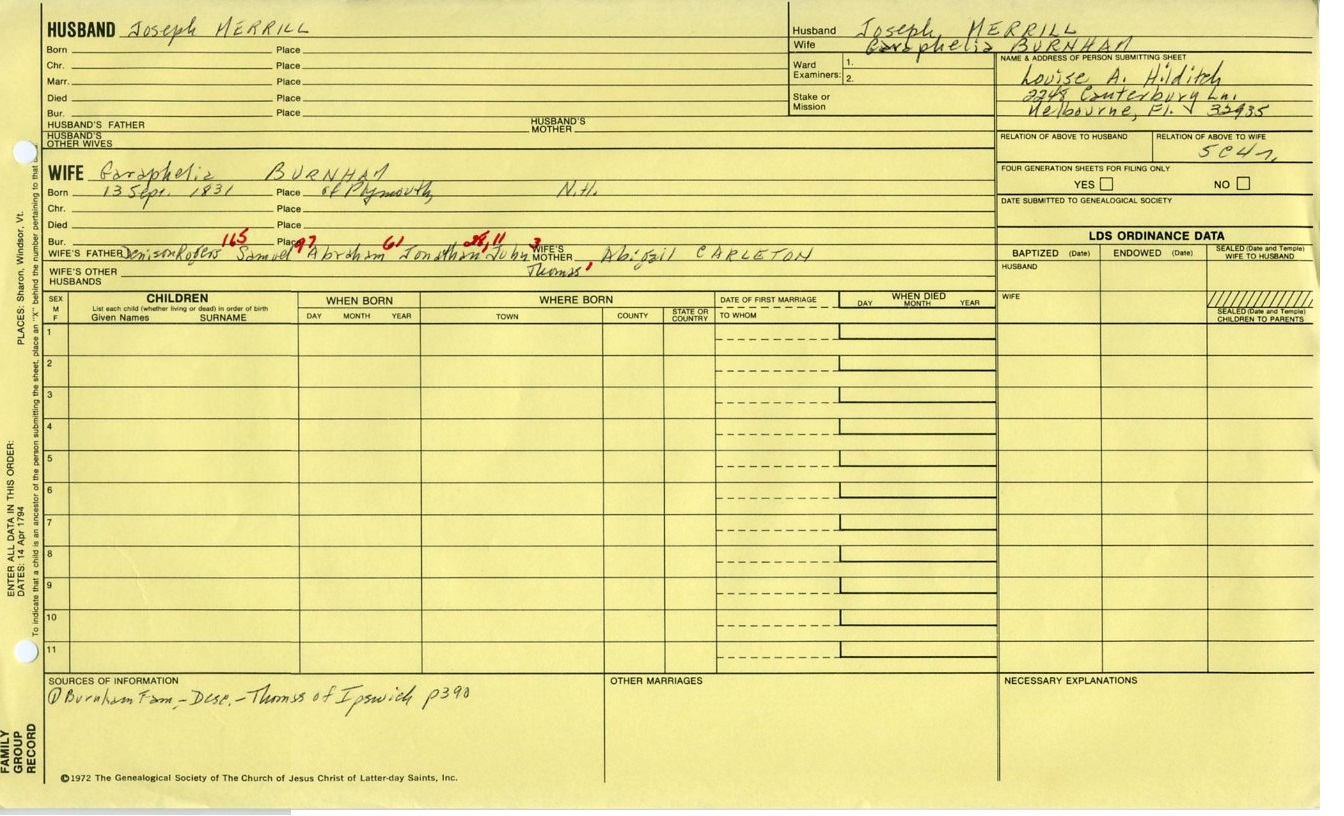 HUSBAND Joseph MERRILL
Born Place
Chr. Place
Marr. Place
Died Place
Bur. Place
HUSBAND'S FATHER HUSBAND'S MOTHER
HUSBAND'S OTHER WIVES
Husband Joseph MERRILL
Wife Garaphelia BURNHAM
Ward Examiners: 1.
2.
Stake or Mission
NAME & ADDRESS OF PERSON SUBMITTING SHEET
Louise A. Hilditch
2248 Canterbury Ln.
Melbourne, Fl. 32935
RELATION OF ABOVE TO HUSBAND RELATION OF ABOVE TO WIFE
5C4r
FOUR GENERATION SHEETS FOR FILING ONLY
YES NO
DATE SUBMITTED TO GENEALOGICAL SOCIETY
WIFE Garaphelia BURNHAM
Born 13 Sept. 1831 Place of Plymouth, N.H.
Chr. Place
Died Place
Bur. Place
165 97 61 28,11 3
WIFE'S FATHER Denison Rogers Samuel Abraham Jonathan John WIFE'S MOTHER Abigail CARLETON
Thomas 1
WIFE'S OTHER HUSBANDS
LDS ORDINANCE DATA
BAPTIZED (Date) ENDOWED (Date) SEALED (Date and Temple) WIFE TO HUSBAND
HUSBAND
WIFE
SEALED (Date and Temple) CHILDREN TO PARENTS
SEX M F
CHILDREN
List each child (whether living or dead) in order of birth
Given Names SURNAME
WHEN BORN
DAY MONTH YEAR
WHERE BORN
TOWN COUNTY STATE OR COUNTRY
DATE OF FIRST MARRIAGE
TO WHOM
WHEN DIED
DAY MONTH YEAR
1
2
3
4
5
6
7
8
9
10
11
SOURCES OF INFORMATION
① Burnham Fam. - Desc. - Thomas of Ipswich p390
OTHER MARRIAGES
NECESSARY EXPLANATIONS
©1972 The Genealogical Society of The Church of Jesus Christ of Latter-day Saints, Inc.
FAMILY GROUP RECORD
ENTER ALL DATA IN THIS ORDER:
DATES: 14 Apr 1794
PLACES: Sharon, Windsor, Vt.
To indicate that a child is an ancestor of the person submitting the sheet, place an "X" behind the number pertaining to that